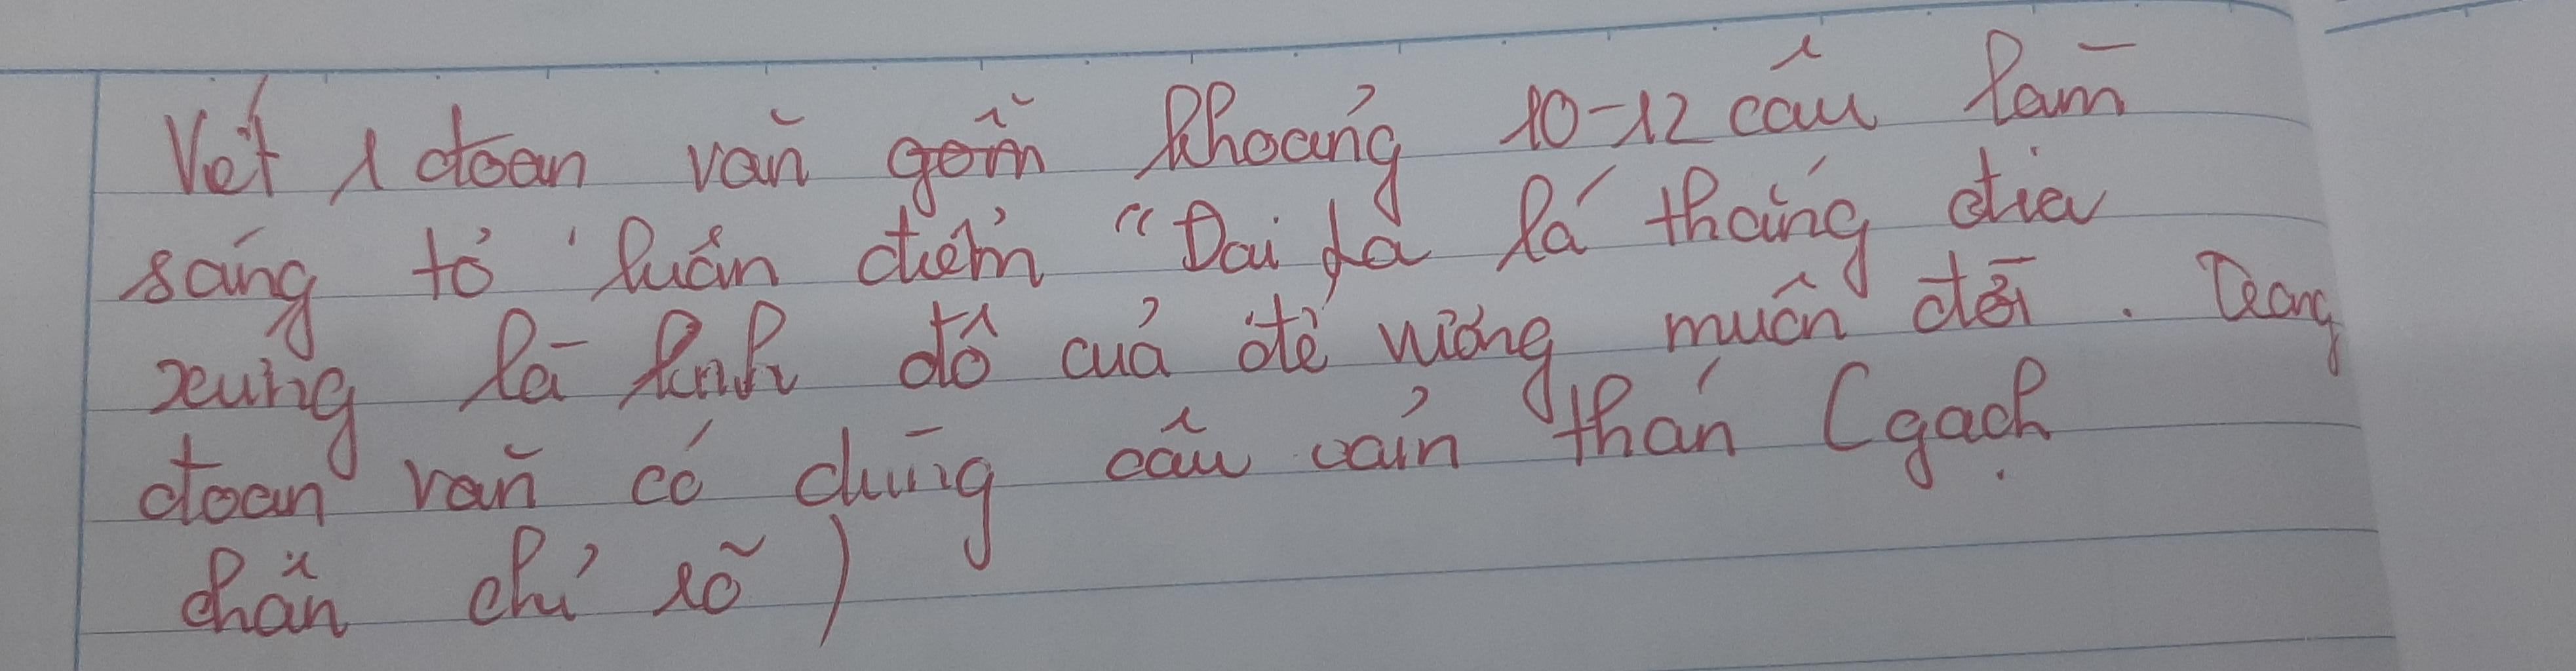 Viết 1 đoạn văn gồm khoảng 10-12 câu làm
sáng tỏ luận điểm "Đại La là thắng địa
xứng là kinh đô của đế vương muôn đời. Trong
đoạn văn có dùng câu cảm thán (gạch
chân chỉ rõ)